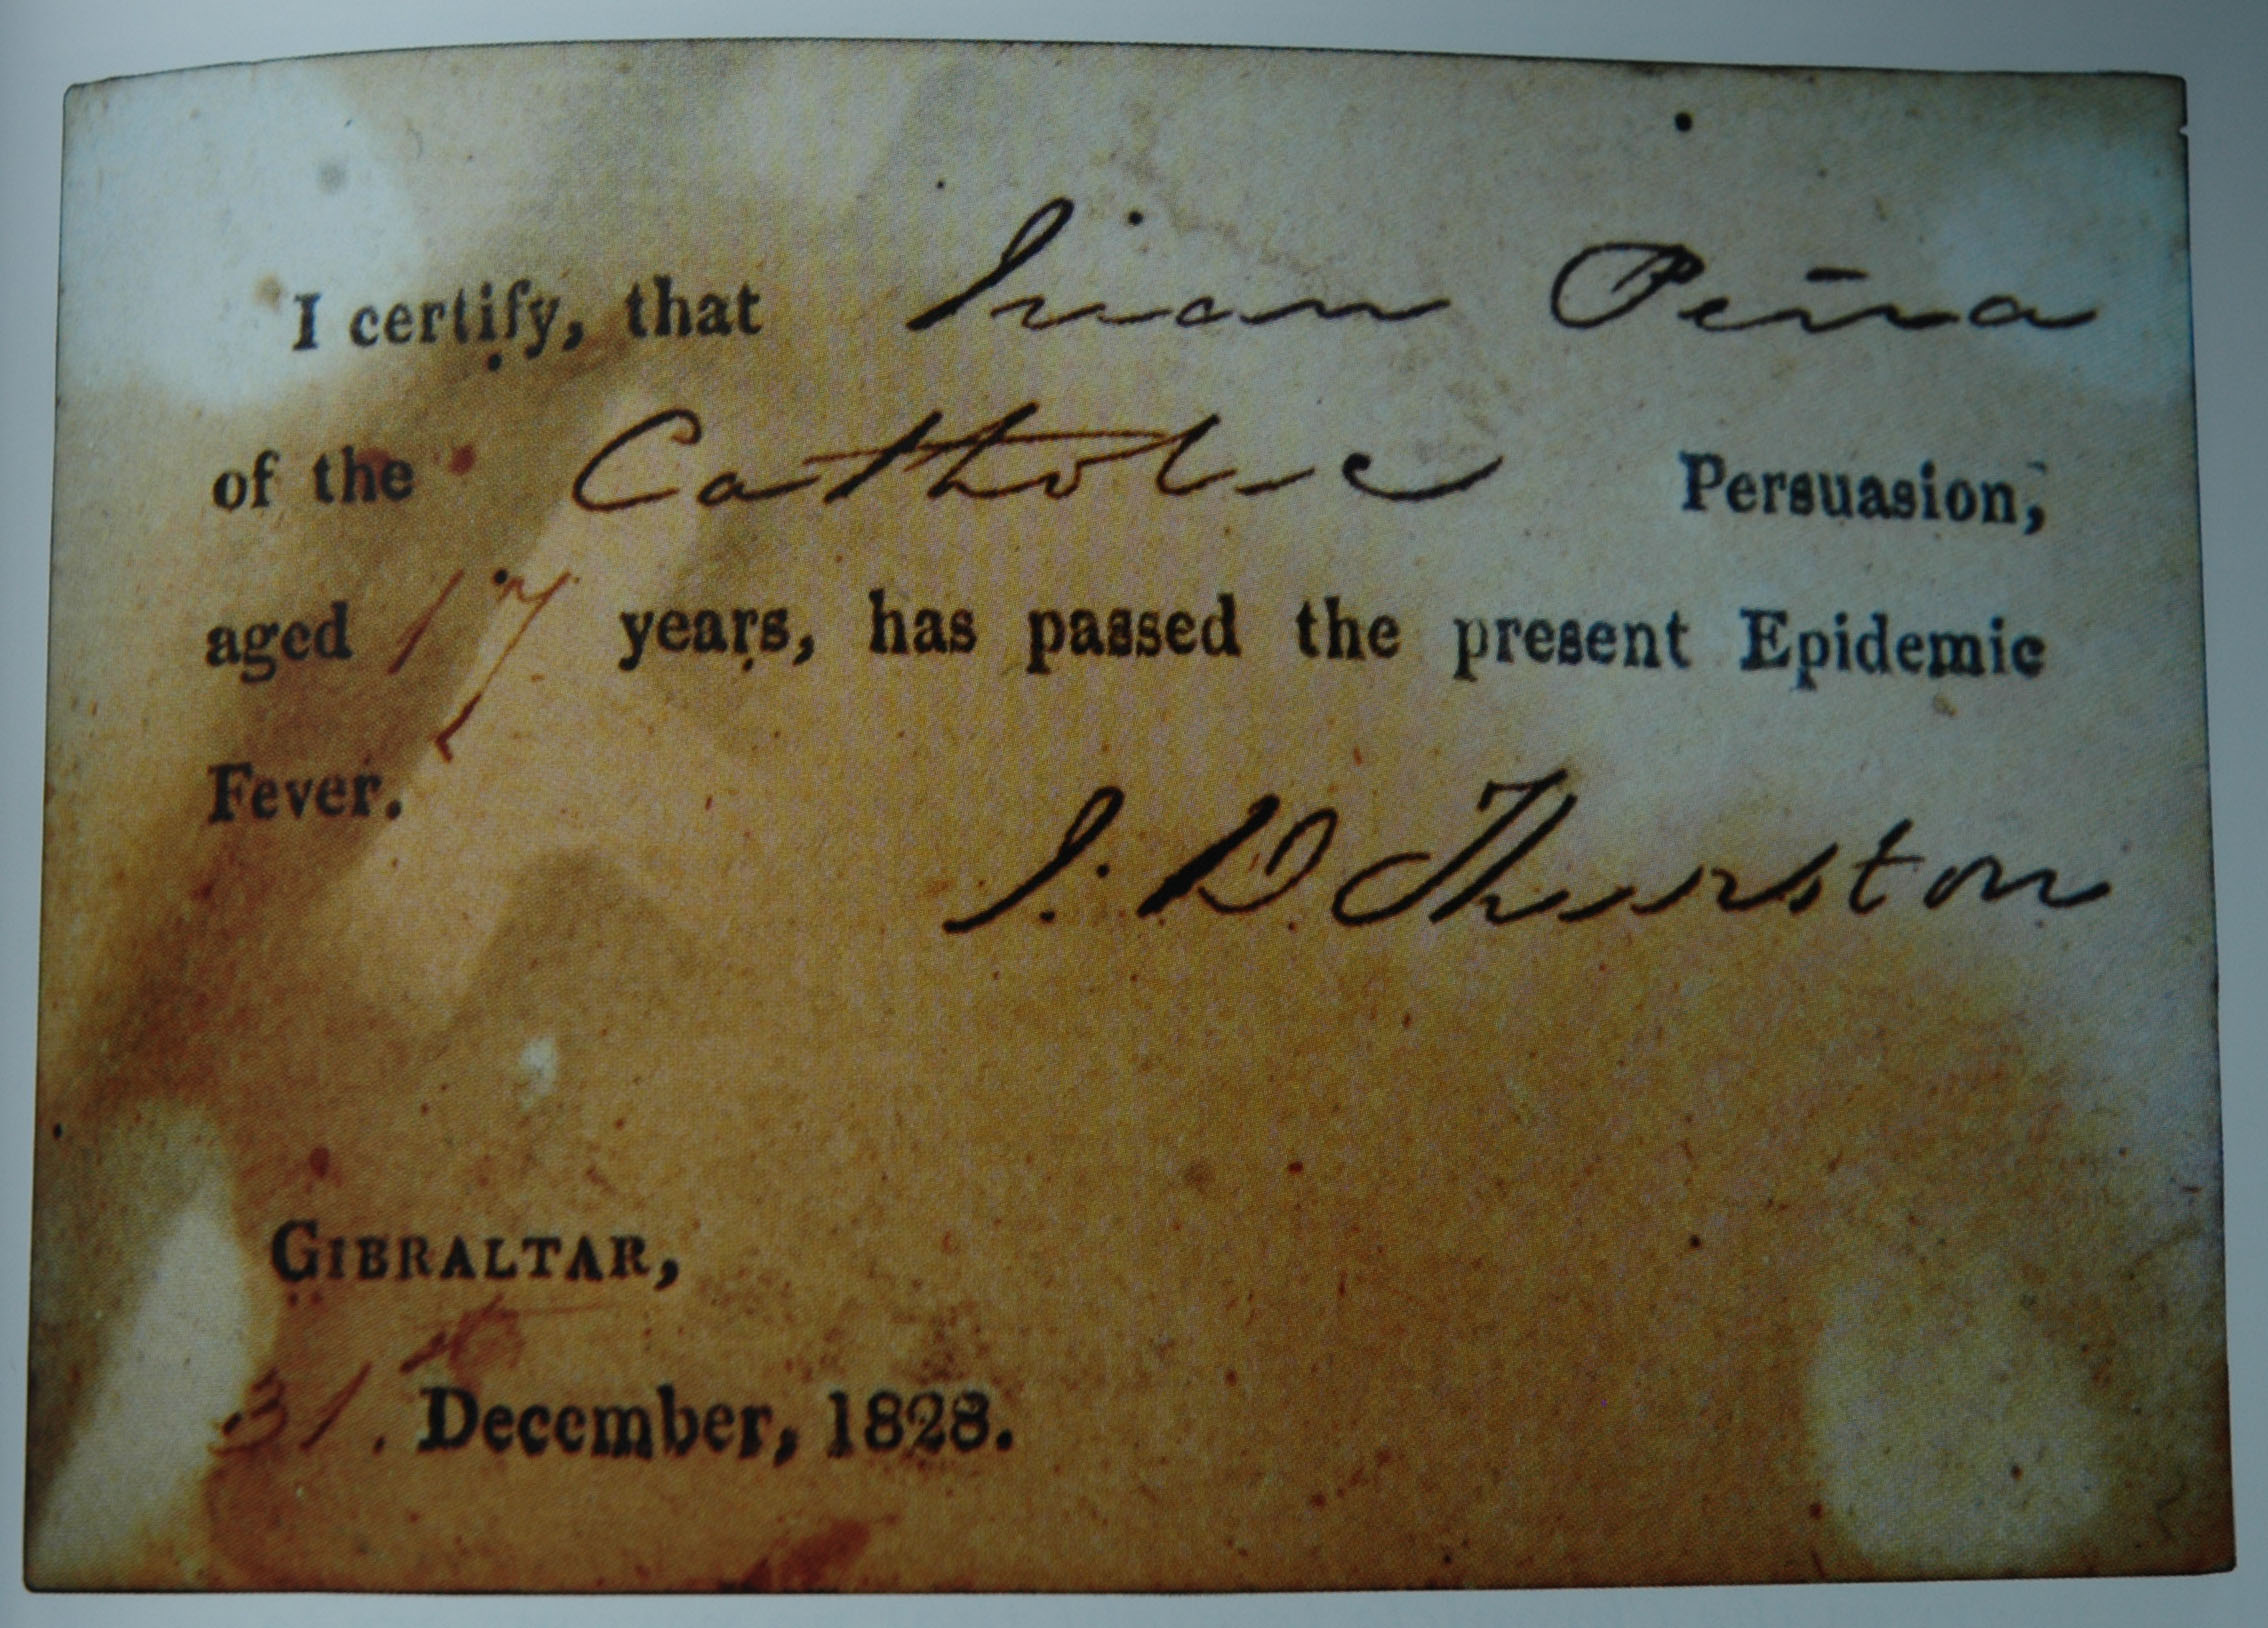 I certify, that Juan Peña
of the Catholic Persuasion,
aged 17 years, has passed the present Epidemic
Fever.
J. D. Thurston
GIBRALTAR,
31st. December, 1828.